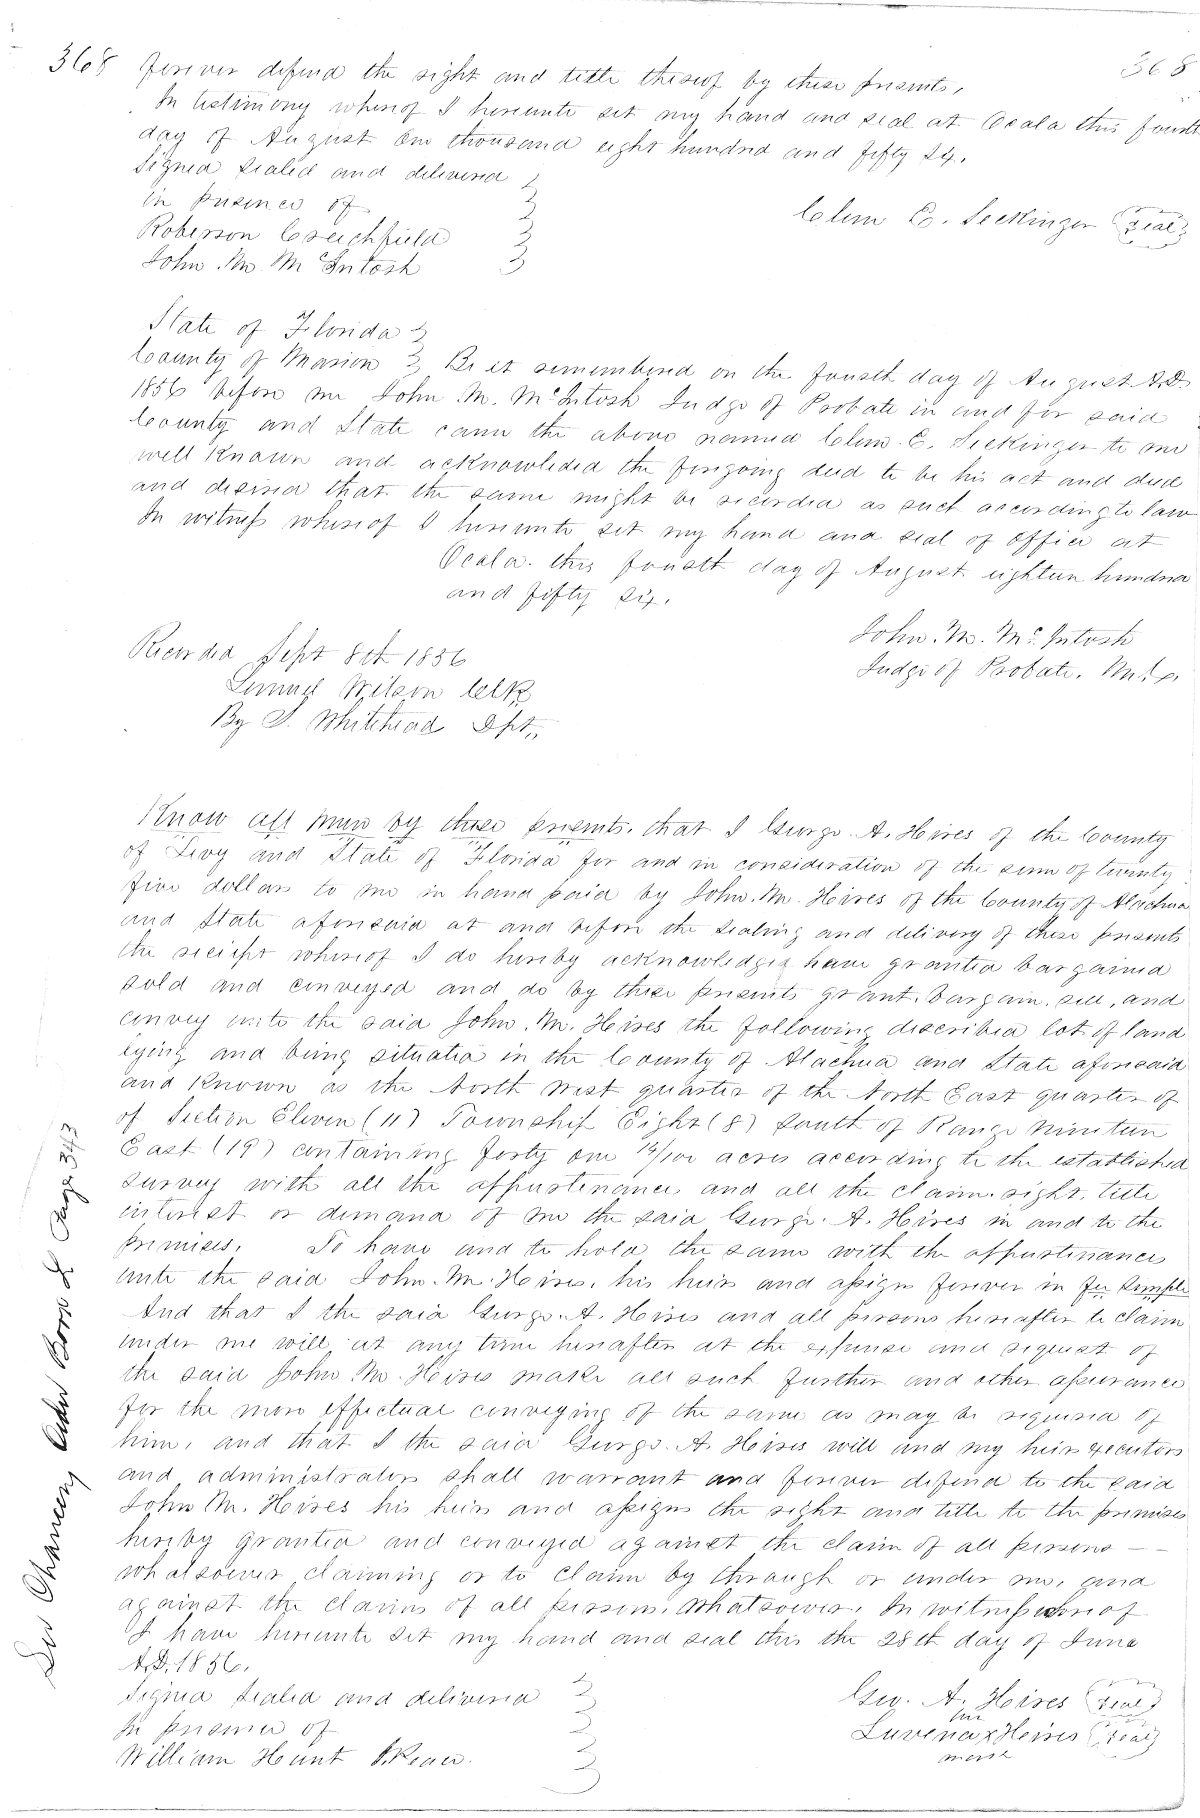 368
368
forever defend the right and title thereof by these presents,
In testimony whereof I hereunto set my hand and seal at Ocala this fourth
day of August One thousand eight hundred and fifty six.
Signed sealed and delivered
in presence of
Roberson Creichfield
John M. McIntosh
Clem E. Seckinger (seal)
State of Florida
County of Marion Be it remembered on the fourth day of August A.D.
1856 before me John M. McIntosh Judge of Probate in and for said
County and State came the above named Clem E. Seckinger to me
well known and acknowleded the foregoing deed to be his act and deed
and desired that the same might be recorded as such according to law
In witness whereof I hereunto set my hand and seal of office at
Ocala. this fourth day of August eighteen hundred
and fifty six.
John. M. McIntosh
Judge of Probate. M.C.
Recorded Sept 8th 1856
Lemuel Wilson Clk
By S. Whitehead Dpt,,
Know all men by these presents. that I George A. Hires of the County
of Levy and State of Florida for and in consideration of the sum of twenty
five dollars to me in hand paid by John. M. Hires of the County of Alachua
and State aforesaid at and before the sealing and delivery of these presents
the reciept whereof I do hereby acknowledged have granted bargained
sold and conveyed and do by these presents grant. bargain. sell, and
convey unto the said John. M. Hires the following described lot of land
lying and being situated in the County of Alachua and State aforesaid
and known as the North West quarter of the North East quarter of
of Section Eleven (11) Township Eight (8) South of Range nineteen
East (19) containing forty one 14/100 acres according to the established
survey with all the appurtenances and all the claim. right. title
interest or demand of me the said George. A. Hires in and to the
premises. To have and to hold the same with the appurtenances
unto the said John. M. Hires. his heirs and assigns forever in fee simple
And that I the said George. A. Hires and all persons hereafter to claim
under me will at any time hereafter at the expense and request of
the said John M. Hires make all such further and other assurance
for the more effectual conveying of the same as may be required of
him, and that I the said George A Hires will and my heirs executors
and administrators shall warrant and forever defend to the said
John M. Hires his heirs and assigns the right and title to the premises
hereby granted and conveyed against the claim of all persons — —
whatsoever claiming or to claim by through or under me, and
against the claims of all persons. whatsoever. In witness whereof
I have hereunto set my hand and seal this the 28th day of June
A.D. 1856.
Signed sealed and delivered
In presence of
William Hunt
Geo. A. Hires (seal)
her
Luvena x Hires (seal)
mark
See Chancery Order Book L Page 343